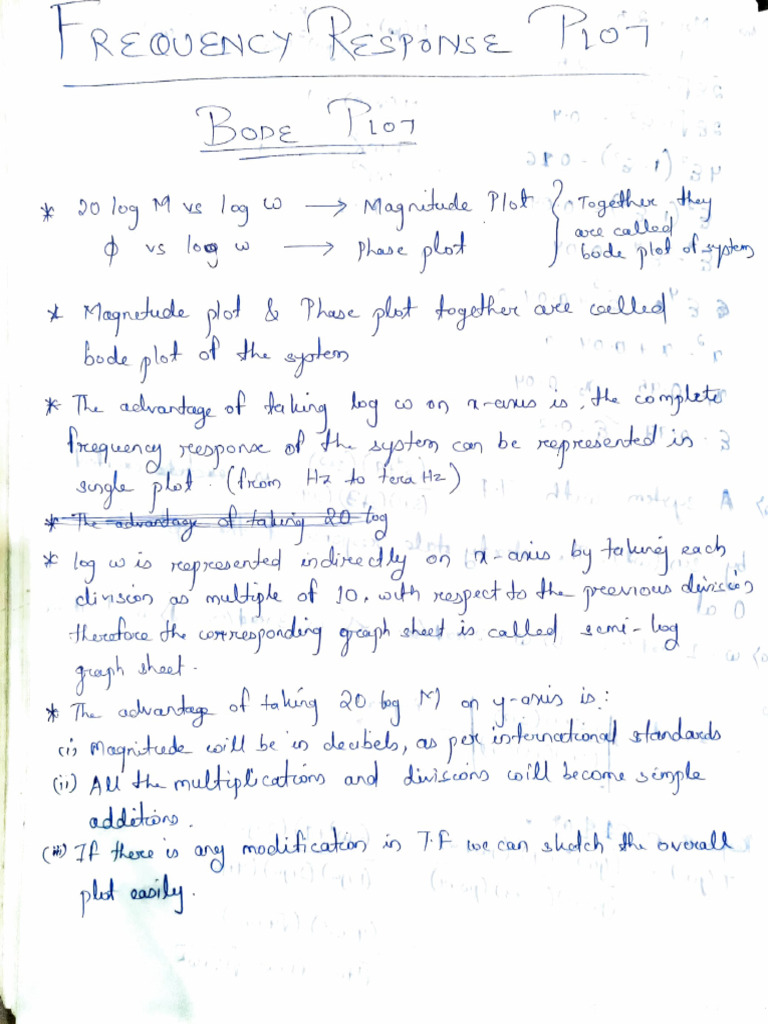 FREQUENCY RESPONSE PLOT
BODE PLOT
* 20 log M vs log ω → Magnitude Plot } Together they
are called
ϕ vs log ω → Phase plot
bode plot of system
* Magnetude plot & Phase plot together are called
bode plot of the system
* The advantage of taking log ω on x-axis is, the complete
frequency response of the system can be represented in
single plot (from Hz to tera Hz)
* The advantage of taking 20 log
* log ω is represented indirectly on x-axis by taking each
division as multiple of 10, with respect to the previous division
therefore the corresponding graph sheet is called semi-log
graph sheet.
* The advantage of taking 20 log M on y-axis is:
(i) Magnitude will be in decibels, as per international standards
(ii) All the multiplications and divisions will become simple
additions.
(iii) If there is any modification in T.F we can sketch the overall
plot easily.